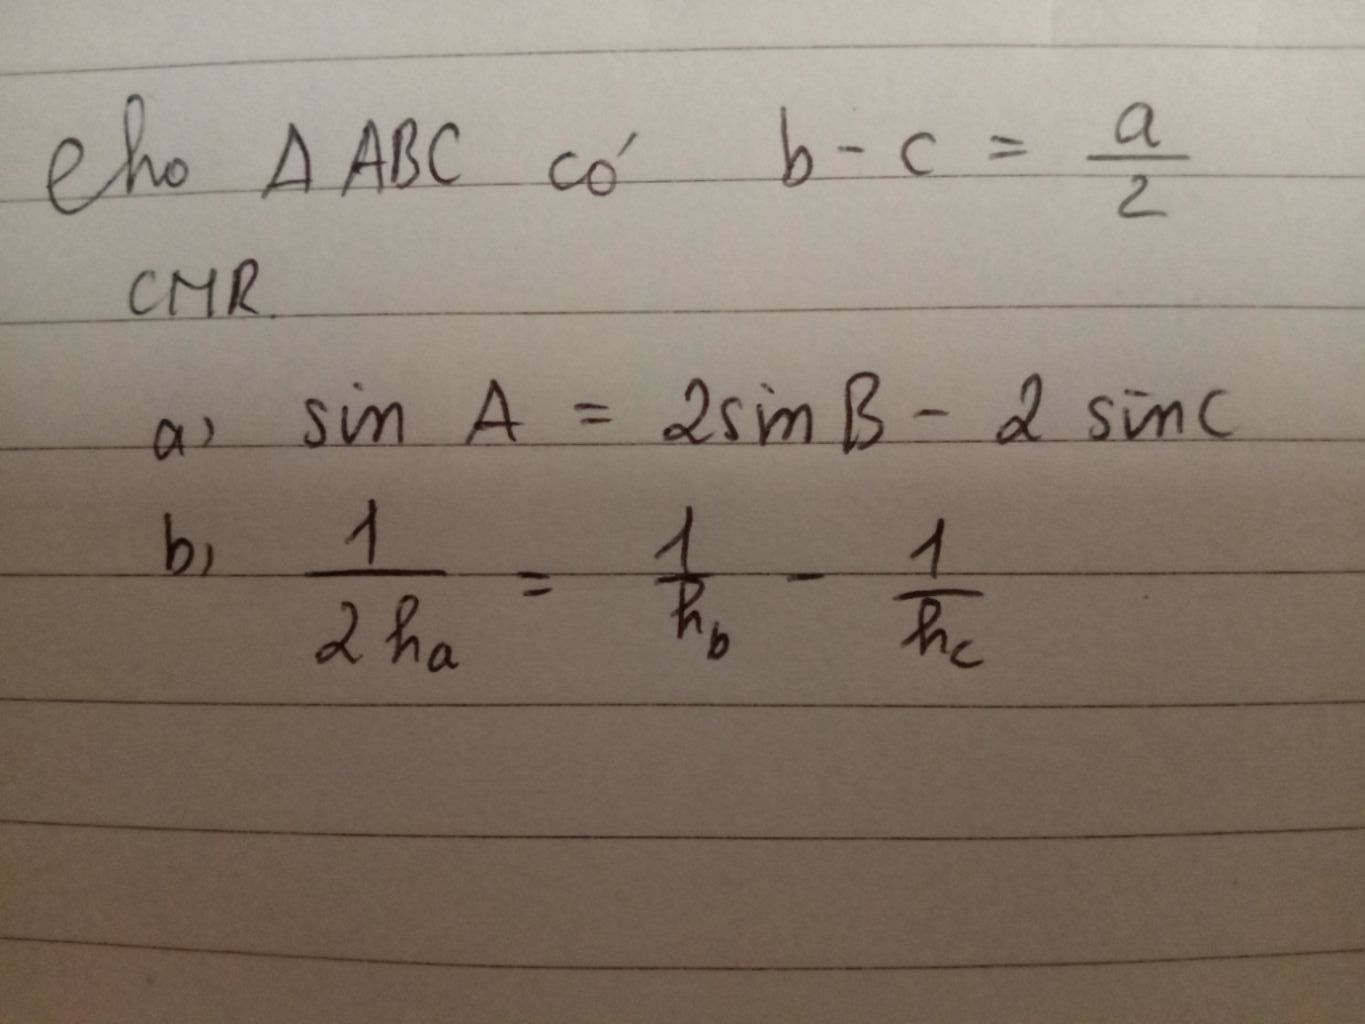 Cho Δ ABC có b - c = a/2
CMR.
a, sin A = 2sin B - 2 sin C
b, 1/(2h_a) = 1/h_b - 1/h_c